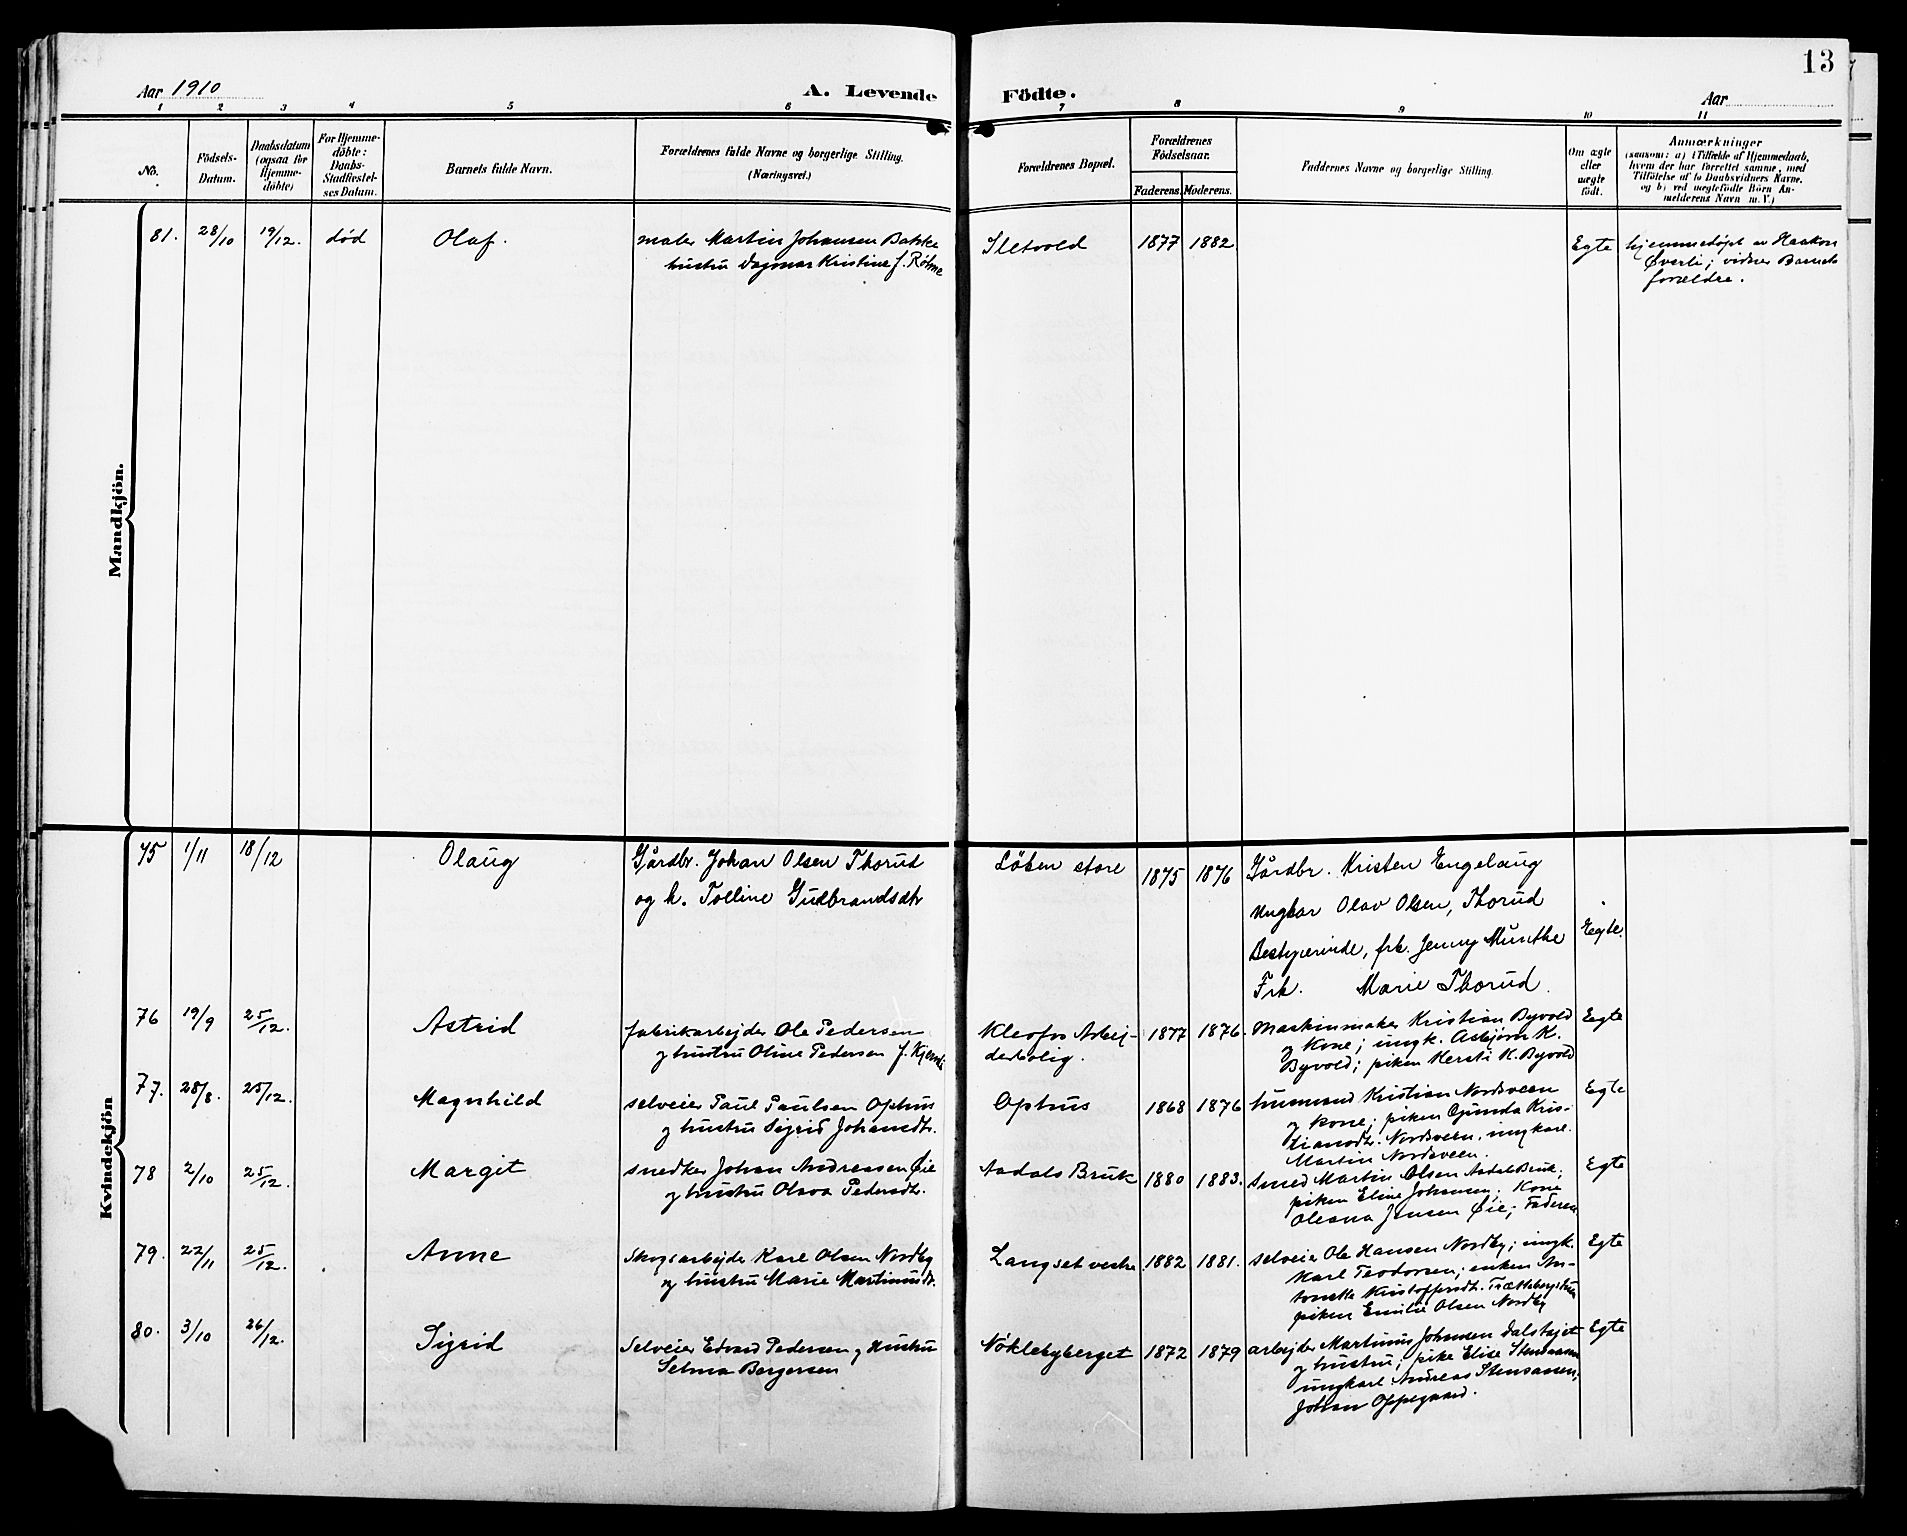 13
Aar 1910
A. Levende Födte.
Aar
1 2 3 4 5 6 7 8 9 10 11
No.
Födsels-
Datum.
Daabsdatum
(ogsaa for
Hjemme-
döbte)
For Hjemme-
döbte:
Daabs-
Stadfæstel-
ses Datum.
Barnets fulde Navn.
Forældrenes fulde Navne og borgerlige Stilling.
(Næringsvei.)
Forældrenes Bopæl.
Forældrenes
Födselsaar.
Faderens. Moderens.
Faddernes Navne og borgerlige Stilling.
Om ægte
eller
uægte
födt.
Anmærkninger
(saasom: a) i Tilfælde af Hjemmedaab,
hvem der har forrettet samme, med
Tilföielse af to Daabsvidners Navne.
og b) ved uægtefödte Börn An-
melderens Navn m. V.)
Mandkjön.
81. 28/10 19/12. død Olaf. maler Martin Johansen Bakke
hustru Dagmar Kristine f. Røhne
Sletvold 1877 1882 Egte
hjemmedøpt av Haakon
Øverli; vidner Barnets
forældre.
Kvindekjön
75 1/11 18/12 Olaug Gårdbr. Johan Olsen Thorud
og h. Tolline Gudbrandsdtr
Løken store 1875 1876 Gårdbr. Kristen Engelaug
Ungkar Olav Olsen, Thorud
Bestyrerinde, frk. Jenny Munthe
Frk. Marie Thorud
Egte.
76 19/9 25/12. Astrid fabrikarbejder Ole Pedersen
og hustru Oline Pedersen f.
Kleofos Arbej-
derbolig.
1877 1876. Maskinmaker Kristian Byvold
og kone; ungk. Asbjørn K.
Byvold; piken Kersti K. Byvold
Egte
77. 28/8. 25/12. Magnhild selveier Paul Paulsen Ophus
og hustru Sigrid Johansdtr.
Ophus 1868 1876 husmand Kristian Nordsveen
og kone; piken Gunda Kris-
tiansdtr. Nordsveen, ungkarl.
Martin Nordsveen.
Egte
78 2/10 25/12. Margit snedker Johan Andreassen Øie
og hustru Olava Pedersdtr.
Aadals Bruk 1880 1883. Smed Martin Olsen Aadals Bruk;
piken Eline Johansen; Kone
Oleana Jensen Øie; Faderen
Egte
79. 22/11 25/12. Anne Skogsarbejder Karl Olsen Nordby
og hustru Marie Martinusdtr.
Langset vestre 1882 1881. selveier Ole Hansen Nordby; ungk.
Karl Teodorsen; enken An-
tonette Kristoffersdtr.
piken Emilie Olsen Nordby
Egte
80. 3/10 26/12. Sigrid Selveier Edvard Pedersen og Hustru
Selma Bergersen
Nøklebyberget 1872 1879 arbejder Martinus Johnsen
og hustru; pike Elise
ungkarl Andreas Stensaasen,
Johan Oppegaard.
Egte